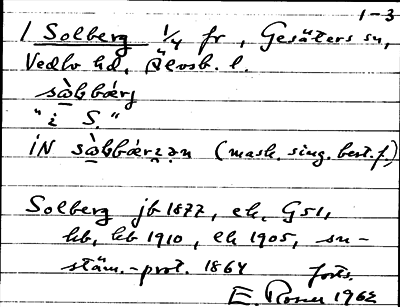 1-3
1 Solberg 1/4 fr, Gesäters sn,
Vedbo hd, Älvsb. l.
sò̱lbærj
"i S."
iN sò̱lbærjən (mask. sing. best. f.)
Solberg jb 1877, ek, GS1,
kb, kb 1910, ek 1905, sn-
stäm.-prot. 1864
forts.
E. Rosén 1962